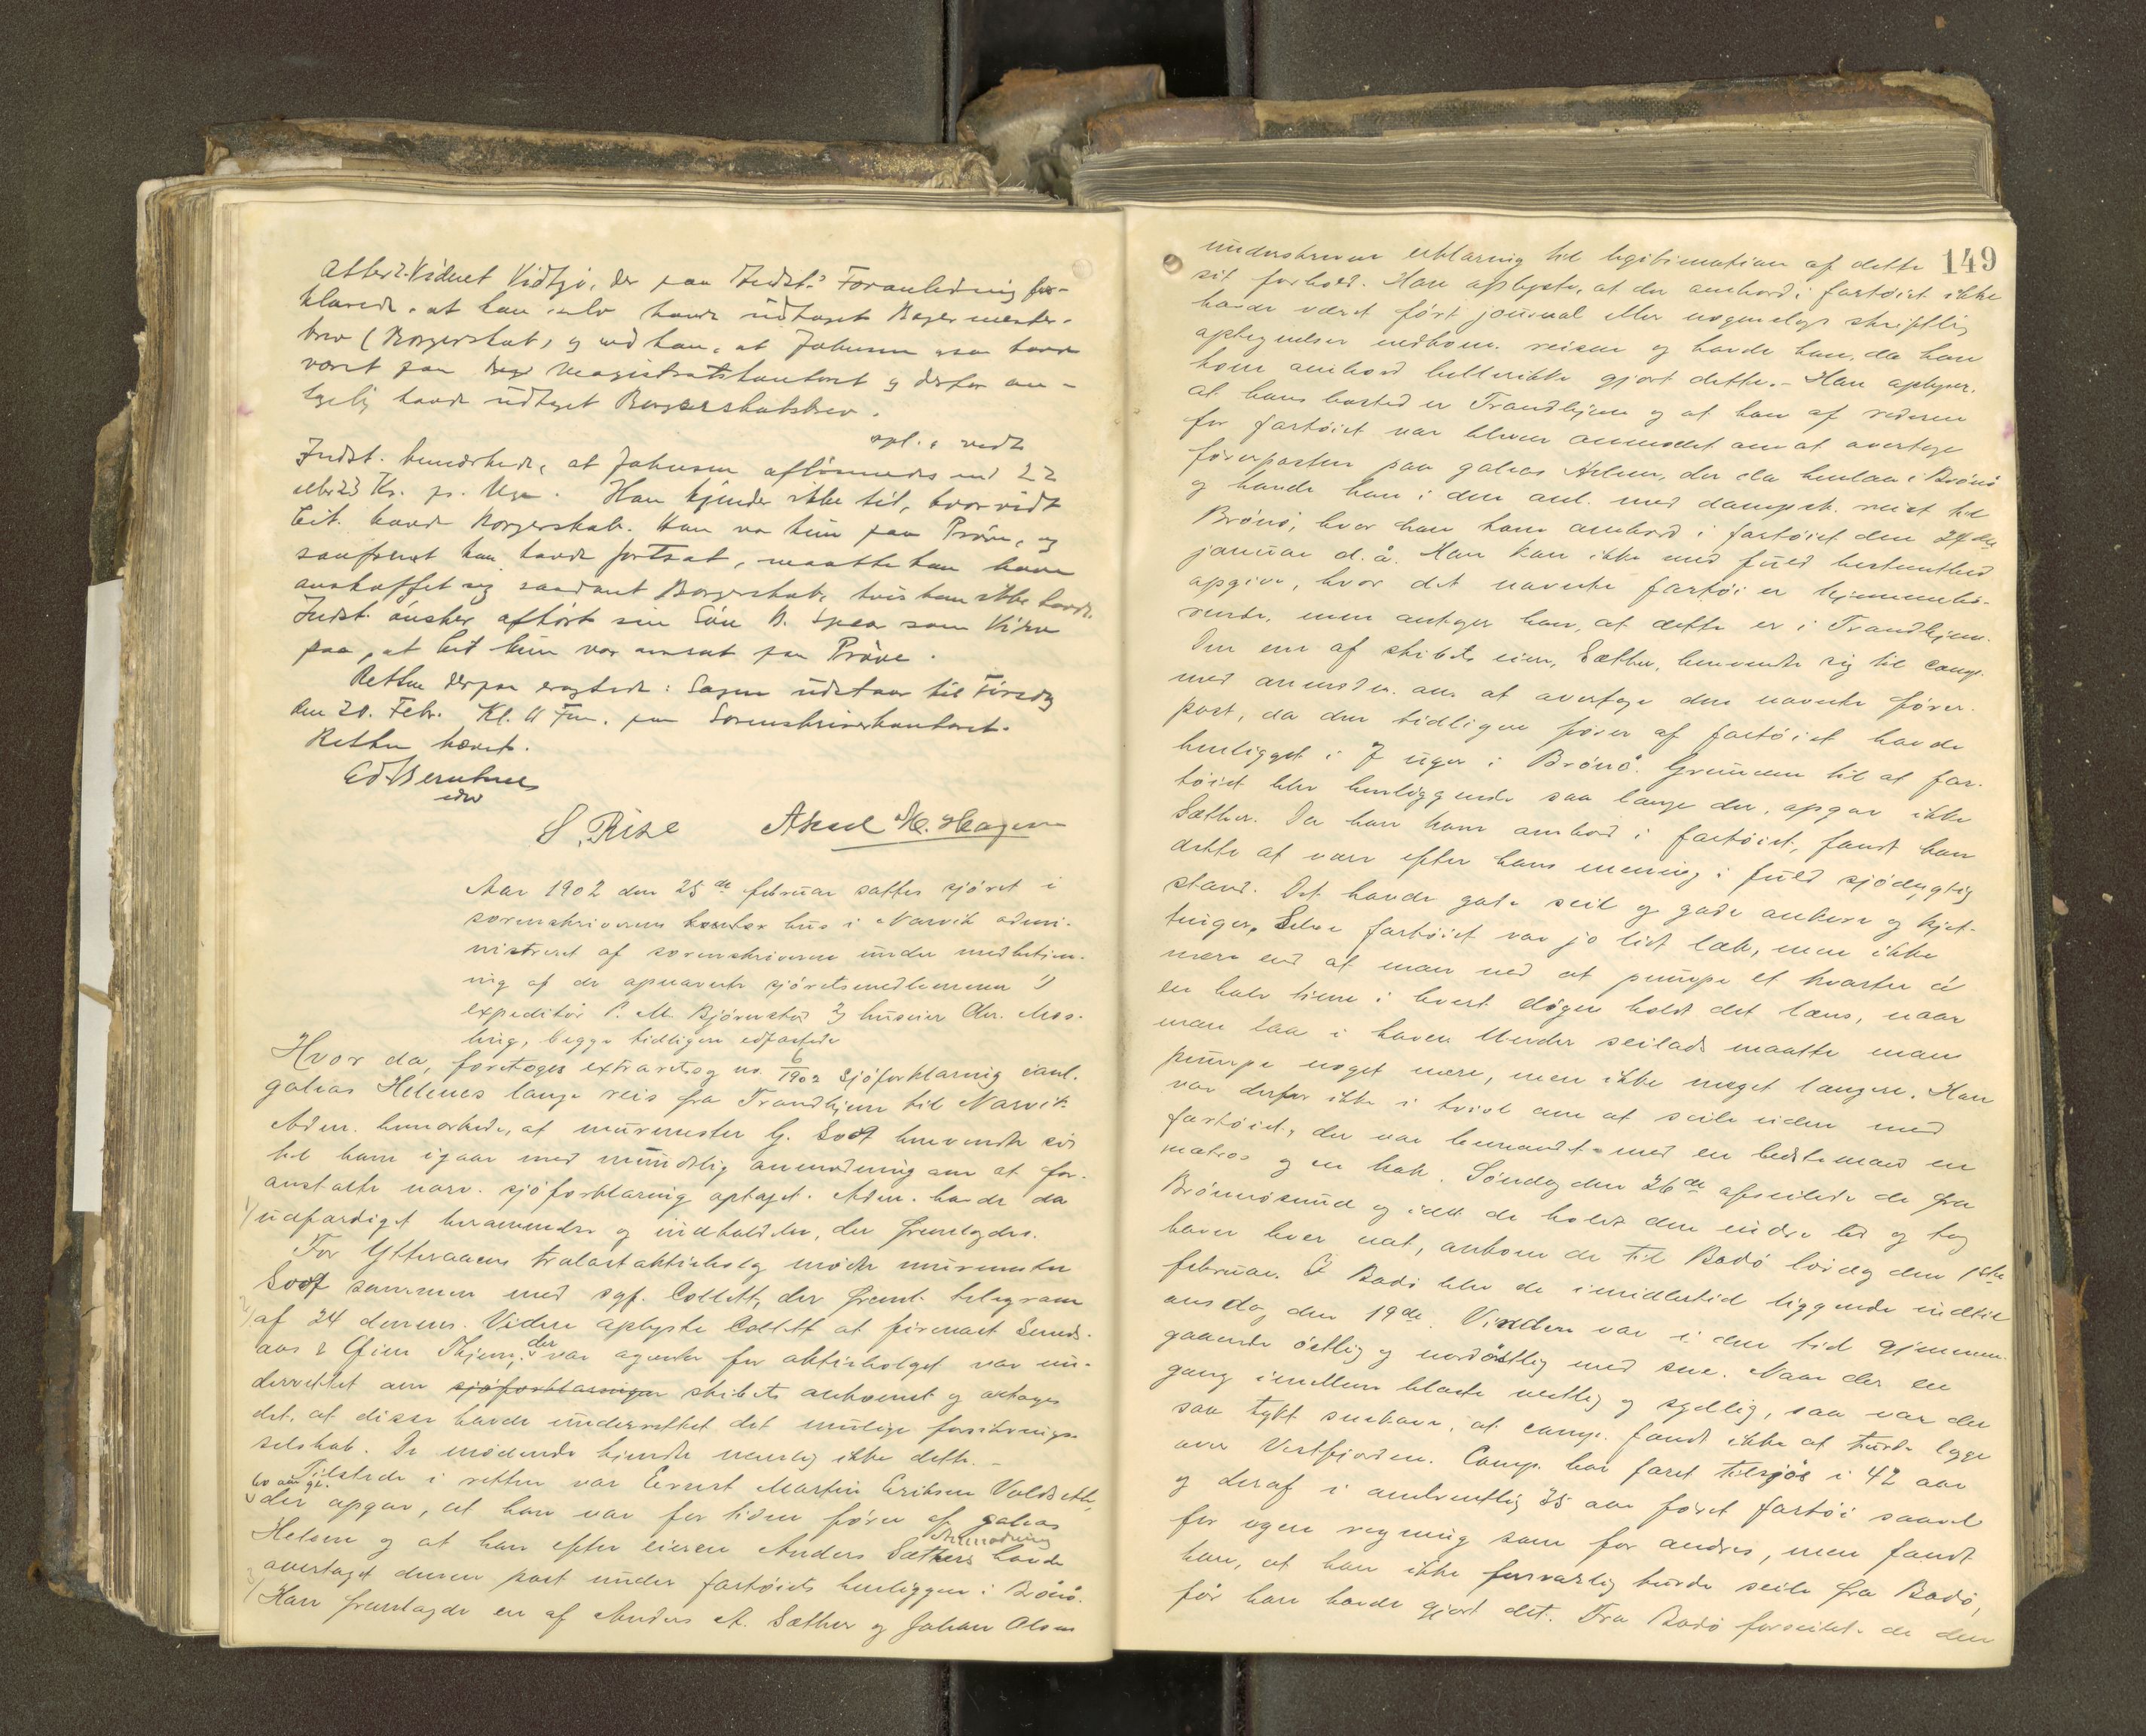 Atter 2. Vidnet Vidtjø, der paa Indst.s Foranledning for-
klarede, at han selv havde udtaget Bagermester-
brev (Borgerskab) og ved han, at Johnsen ogsaa havde
været paa Magistratskontoret og derfor an-
tagelig havde udtaget Borgerskabsbrev.
opl. i vedt
Indst. bemærkede, at Johnsen aflønnedes med 22
eller 23 Kr. pr. Uge. Han kjender ikke til, hvorvidt
Cit. havde Borgerskab. Han var kun paa Prøve, og
saafremt han havde fortsat, maatte han have
anskaffet sig saadant Borgerskab, hvis han ikke havde.
Indst. ønsker afhørt sin Søn B. som Vidne
paa, at Cit. kun var ansat paa Prøve.
Retten derpaa eragtede: Sagen udstaar til Tirsdag
den 20. Febr. Kl. 11 Fm. paa Sorenskriverkontoret.
Retten hævet.
Ed. Berntsen
edsv
S. Rise Aksel M. Hagen
Aar 1902 den 25de februar sattes sjøret i
sorenskriverens kontor hus i Narvik admi-
nistreret af sorenskriveren under medbetjen-
ing af de opnævnte sjøretsmedlemmer 1)
expeditør P. M. Bjørnstad 2) huseier Chr. Mos-
ling, begge tidligere edfæstede
Hvor da, foretoges extraretssag no. 6/1902 Sjøforklaring
galeas Helenes lange reis fra Trondhjem til Narvik
Adm. bemærkede, at murmester G. Soot henvendte sig
til ham igaar med mundtlig anmodning om at for-
anstalte nærv. sjøforklaring optaget. Adm. havde da
1) udfærdiget berammelse og indkaldelse, der fremlagdes.
For Ytteraaens trælastaktiebolag mødte murmester
Soot sammen med sgf. Collett, der freml. telegram
2) af 24 dennes. Videre oplyste Collett at firmaet Sund-
aas & Gjem Thjem, der var agenter for aktiebolaget var un-
derrettet om sjøforklaringen skibets ankomst og antages
det, at disse havde underrettet det mulige forsikrings-
selskab. De mødende kjendte nemlig ikke dette. –
Tilstede i retten var Eernst Martin Eriksen Voldseth,
60 aar gl. der opgav, at han var for tiden fører af galeas
Helene og at han efter eieren Anders Sæthers anmodning havde
overtaget denne post under fartøiets henliggen i Brønø.
3) Han fremlagde en af Anders A. Sæther og Johan Olsen
149
underskreven erklæring til legitimation af dette
sit forhold. Han oplyste, at der ombord i fartøiet ikke
havde været ført journal eller nogenslags skriftlig
optegnelser vedkom. reisen og havde han, da han
kom ombord hellerikke gjort dette. – Han oplyser,
at hans bosted er Trondhjem og at han af rederen
for fartøiet var bleven anmodet om at overtage
førerposten paa galeas Helene, der da henlaa i Brønø
og havde han i den anl. med dampsk. reist til
Brønø, hvor han kom ombord i fartøiet den 24de
januar d. å. Han kan ikke med fuld bestemthed
opgive, hvor det nævnte fartøi er hjemmehø-
rende, men antager han, at dette er i Trondhjem.
Den ene af skibets eiere, Sæther, henvendte sig til comp.
med anmodn. om at overtage den nævnte fører-
post, da den tidligere fører af fartøiet havde
henligget i 7 uger i Brønø. Grunden til at far-
tøiet blev henliggende saa længe der, opgav ikke
Sæther. Da han kom ombord i fartøiet, fandt han
dette at være efter hans mening i fuld sjødygtig
stand. Det havde gode seil og gode ankere og kjet-
tinger. Selve fartøiet var jo lidt læk, men ikke
mere end at man ved at pumpe et kvarter à
en halv time i hvert døgn holdt det læns, naar
man laa i havn. Under seilads maatte man
pumpe noget mere, men ikke meget længere. Han
var derfor ikke i tvivl om at seile viden med
fartøiet, der var bemandet med en bedstemand en
matros og en kok. Søndag den 26de afseilede de fra
Brønnøsund og idet de holdt den indre led og tog
havn hver nat, ankom de til Bodø lørdag den 1ste
februar. I Bodø blev de imidlertid liggende indtil
onsdag den 19de. Vinden var i den tid gjennem-
gaaende østlig og nordøstlig med sne. Naar der en
gang imellem blæste vestlig og sydlig, saa var der
saa tykt snekave, at comp. fandt ikke at turde lægge
over Vestfjorden. Comp. har faret tilsjøs i 42 aar
og deraf i omtrentlig 35 aar ført fartøi saavel
for egen regning som for andres, men fandt
han, at han ikke forsvarlig burde seile fra Bodø,
før han havde gjort det. Fra Bodø forseilede de den